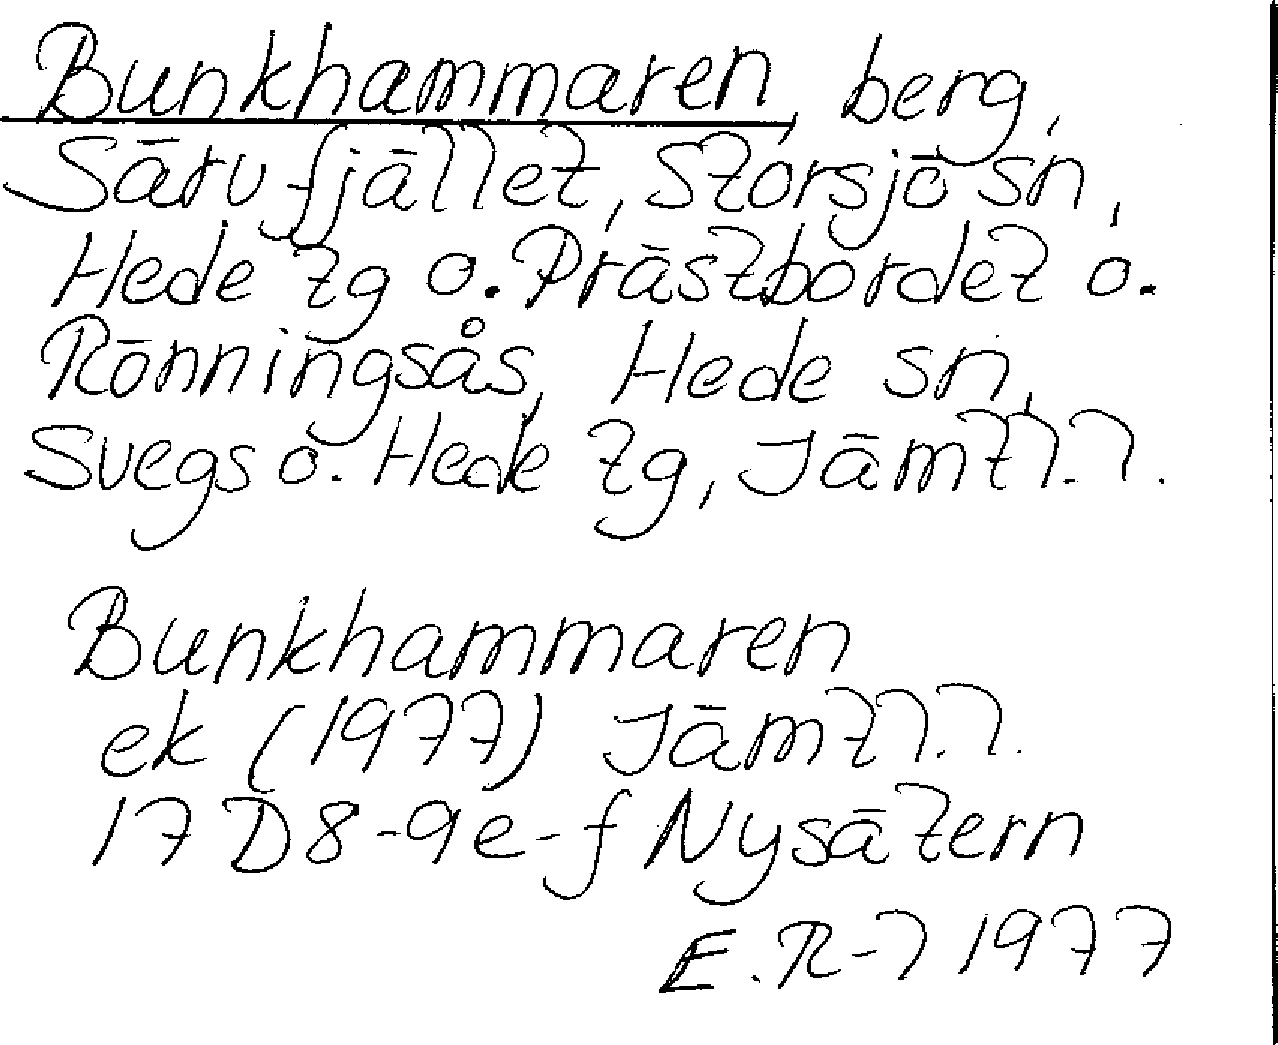 Bunkhammaren, berg,
Särvfjället, Storsjö sn,
Hede tg o. Prästbordet o.
Rönningsås, Hede sn,
Svegs o. Hede tg, Jämtl.l.
Bunkhammaren
ek (1977) Jämtl.l.
17 D 8-9 e-f Nysätern
E.R-l 1977